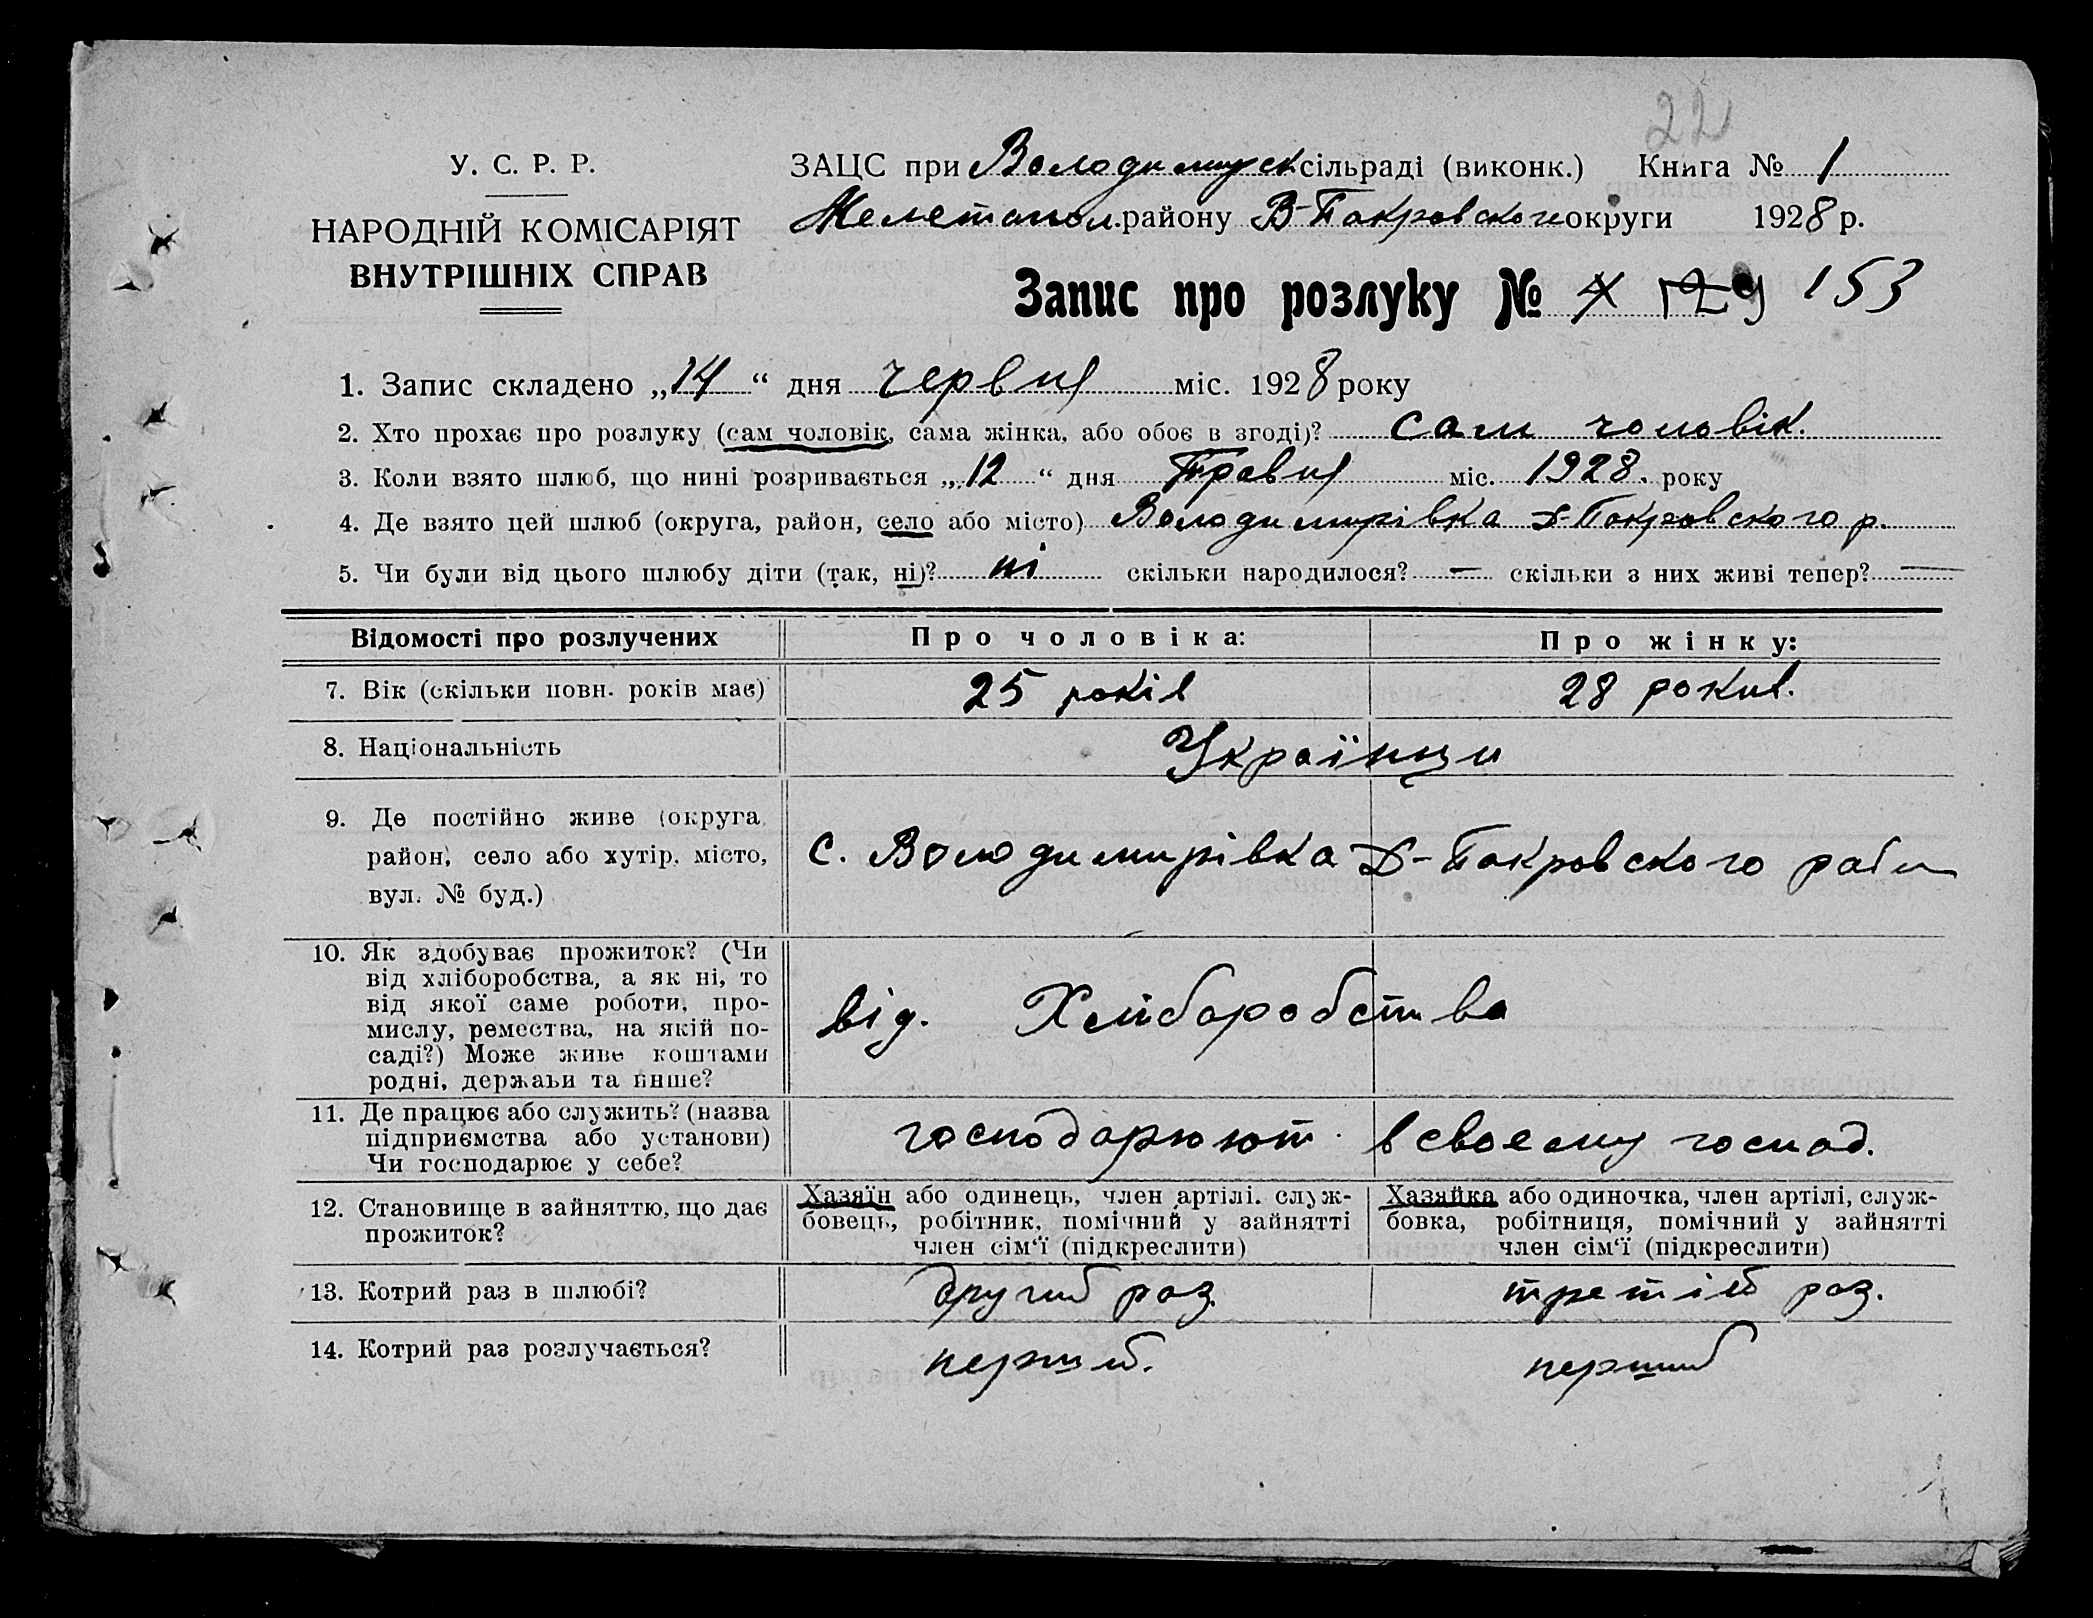 22
У. С. Р. Р.
НАРОДНІЙ КОМІСАРІЯТ
ВНУТРІШНІХ СПРАВ
ЗАЦС при Володимирск сільраді (виконк.) Книга № 1
Мелетопол. району В-Покровского округи 1928 р.
Запис про розлуку № 4 129 153
1. Запис складено „14“ дня червня міс. 1928 року
2. Хто прохає про розлуку (сам чоловік, сама жінка, або обоє в згоді)? сам чоловік.
3. Коли взято шлюб, що нині розривається „12“ дня Травня міс. 1928. року
4. Де взято цей шлюб (округа, район, село або місто) Володимирівка В-Покровского р.
5. Чи були від цього шлюбу діти (так, ні)? ні скільки народилося? — скільки з них живі тепер? —
Відомості про розлучених Про чоловіка: Про жінку:
7. Вік (скільки повн. років має) 25 років 28 рокив.
8. Національність Українци
9. Де постійно живе (округа,
район, село або хутір, місто,
вул. № буд.)
с. Володимирівка В-Покровского рай
10. Як здобуває прожиток? (Чи
від хліборобства, а як ні, то
від якої саме роботи, про-
мислу, ремества, на якій по-
саді?) Може живе коштами
родні, держави та инше?
від. Хліборобства
11. Де працює або служить? (назва
підприємства або установи)
Чи господарює у себе?
господарюют в своему господ.
12. Становище в зайняттю, що дає
прожиток?
Хазяїн або одинець, член артілі. служ-
бовець, робітник, помічний у зайнятті
член сім‘ї (підкреслити)
Хазяйка або одиночка, член артілі, служ-
бовка, робітниця, помічний у зайнятті
член сім‘ї (підкреслити)
13. Котрий раз в шлюбі? другий раз. третій раз.
14. Котрий раз розлучається? перший. перший